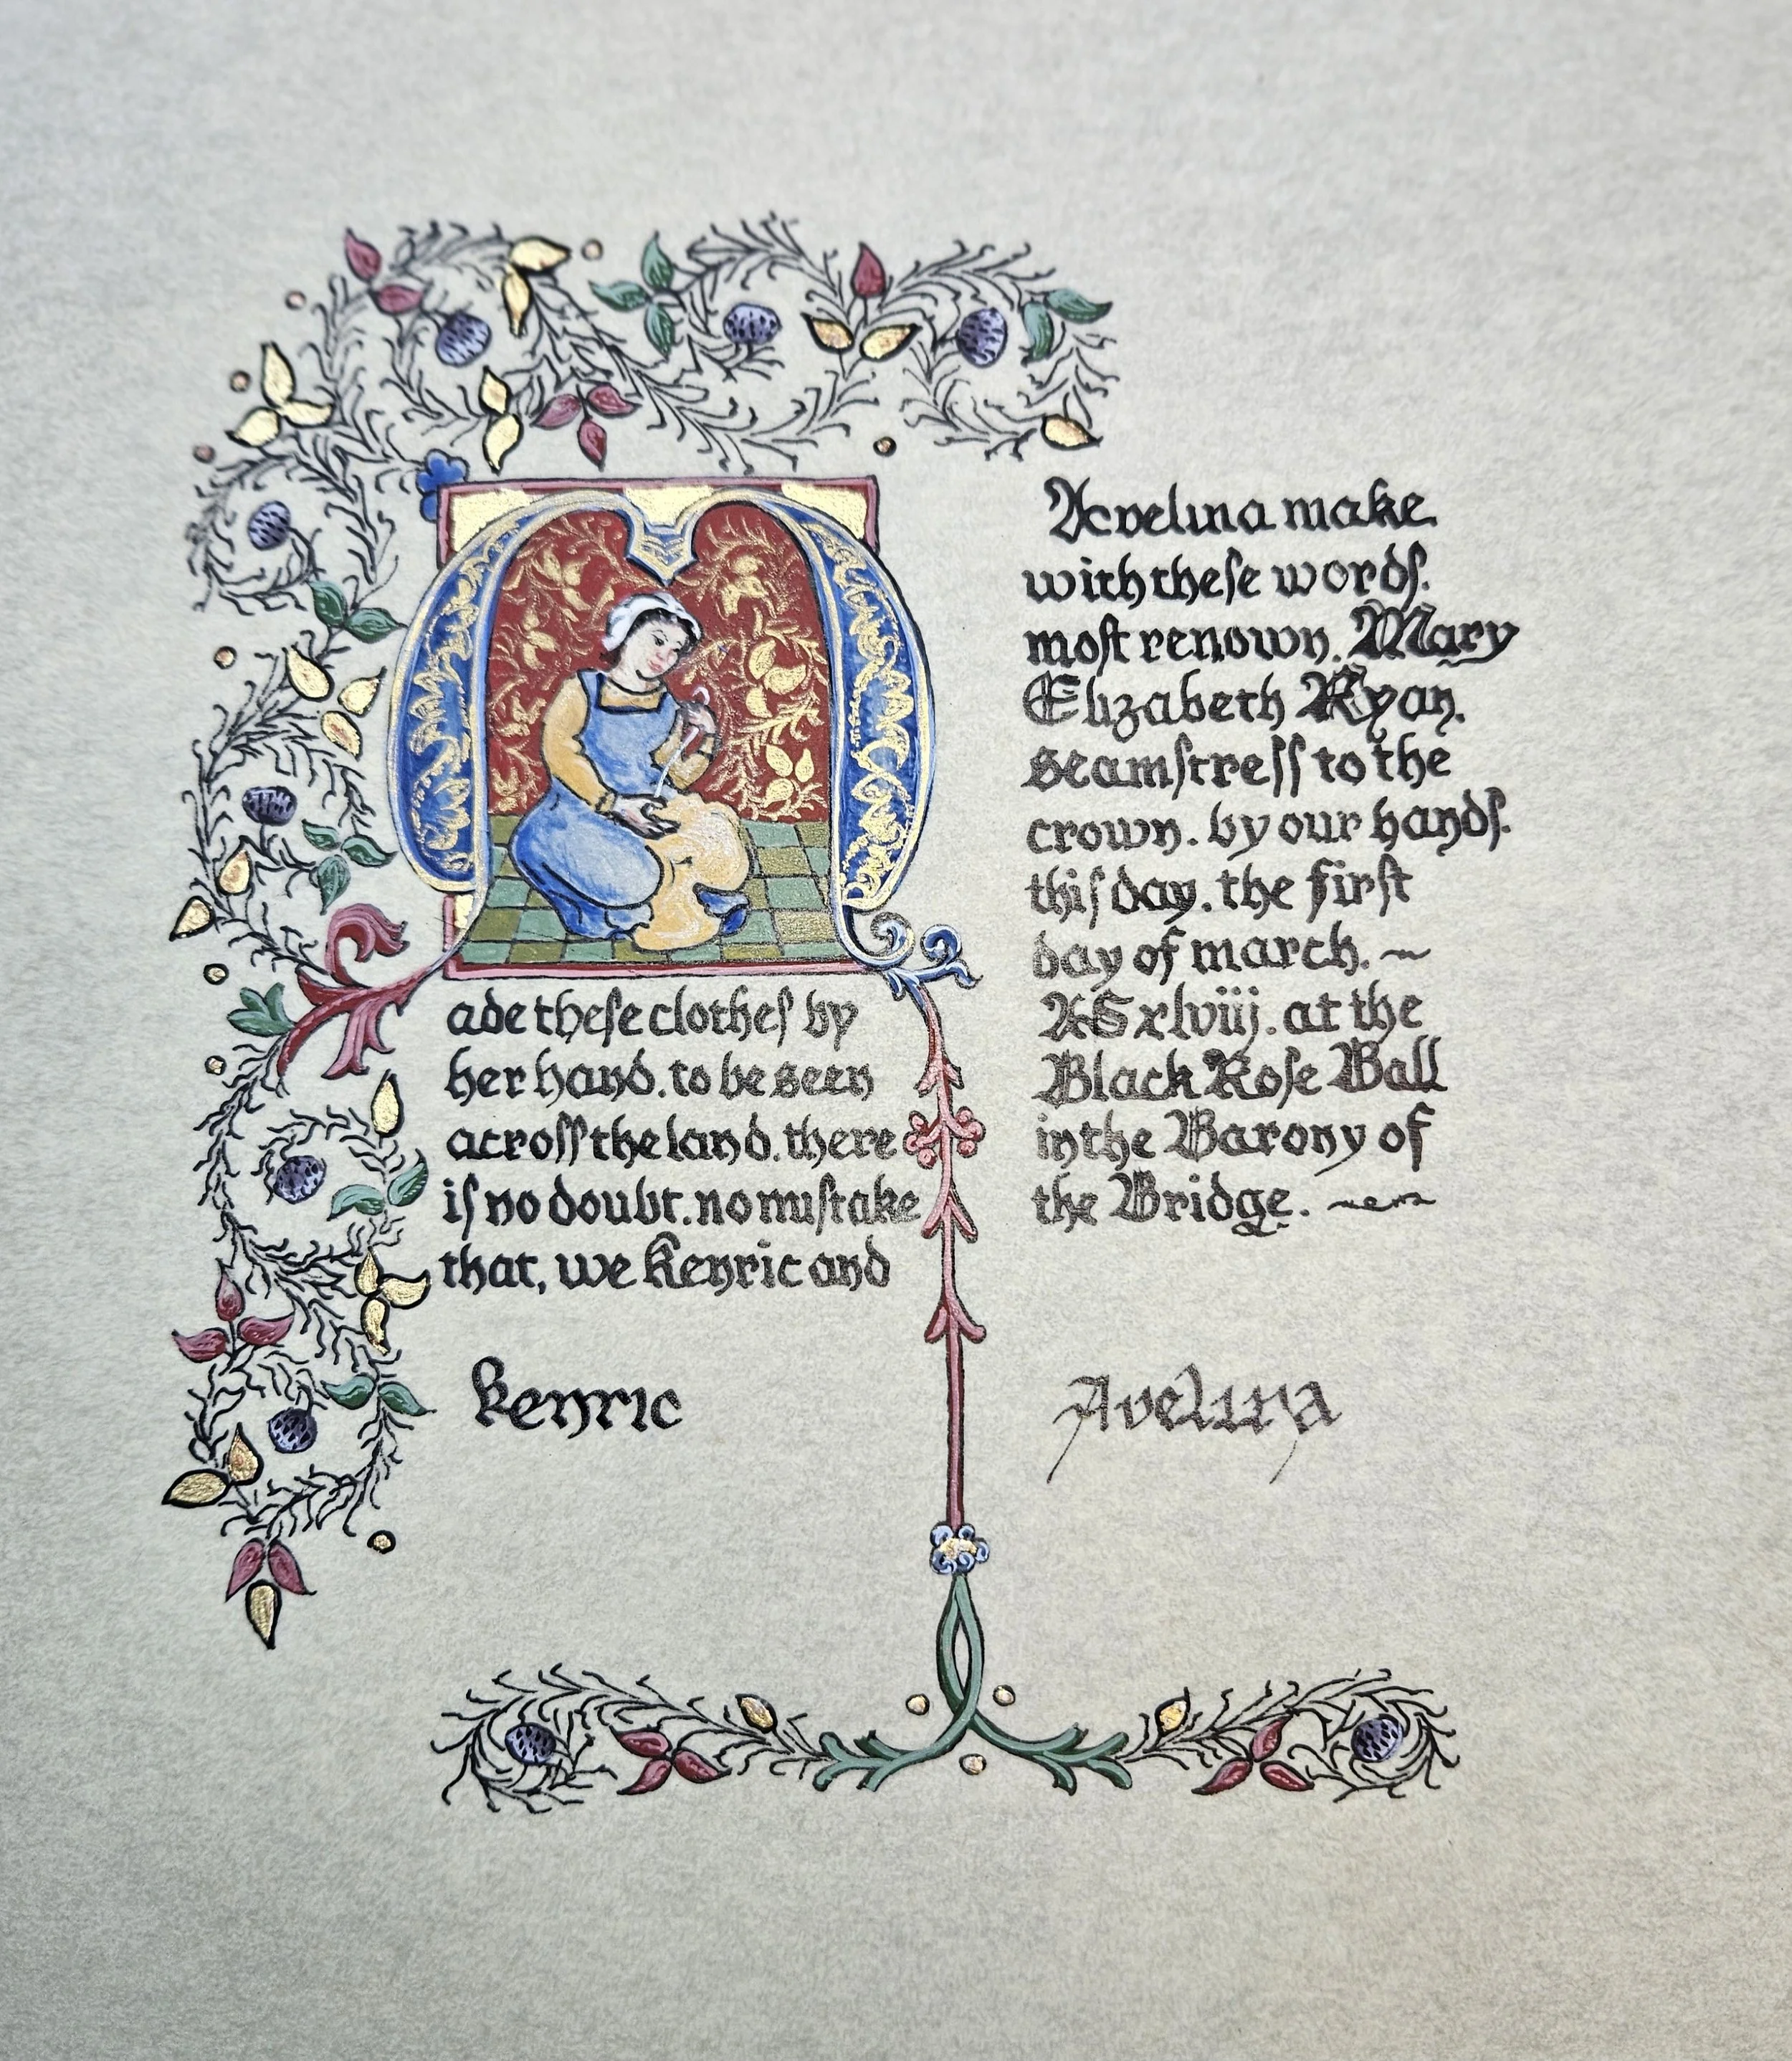 M
ade theſe clotheſ by
her hand. to be seen
acroſſ the land. there
iſ no doubt. no miſtake
that, we Kenric and
Avelina make
with theſe wordſ.
moſt renown. Mary
Elizabeth Ryan.
seamſtreſſ to the
crown. by our handſ.
thiſ day. the firſt
day of march. ~
AS xlviij. at the
Black Roſe Ball
in the Barony of
the Bridge.
Kenric
Avelina